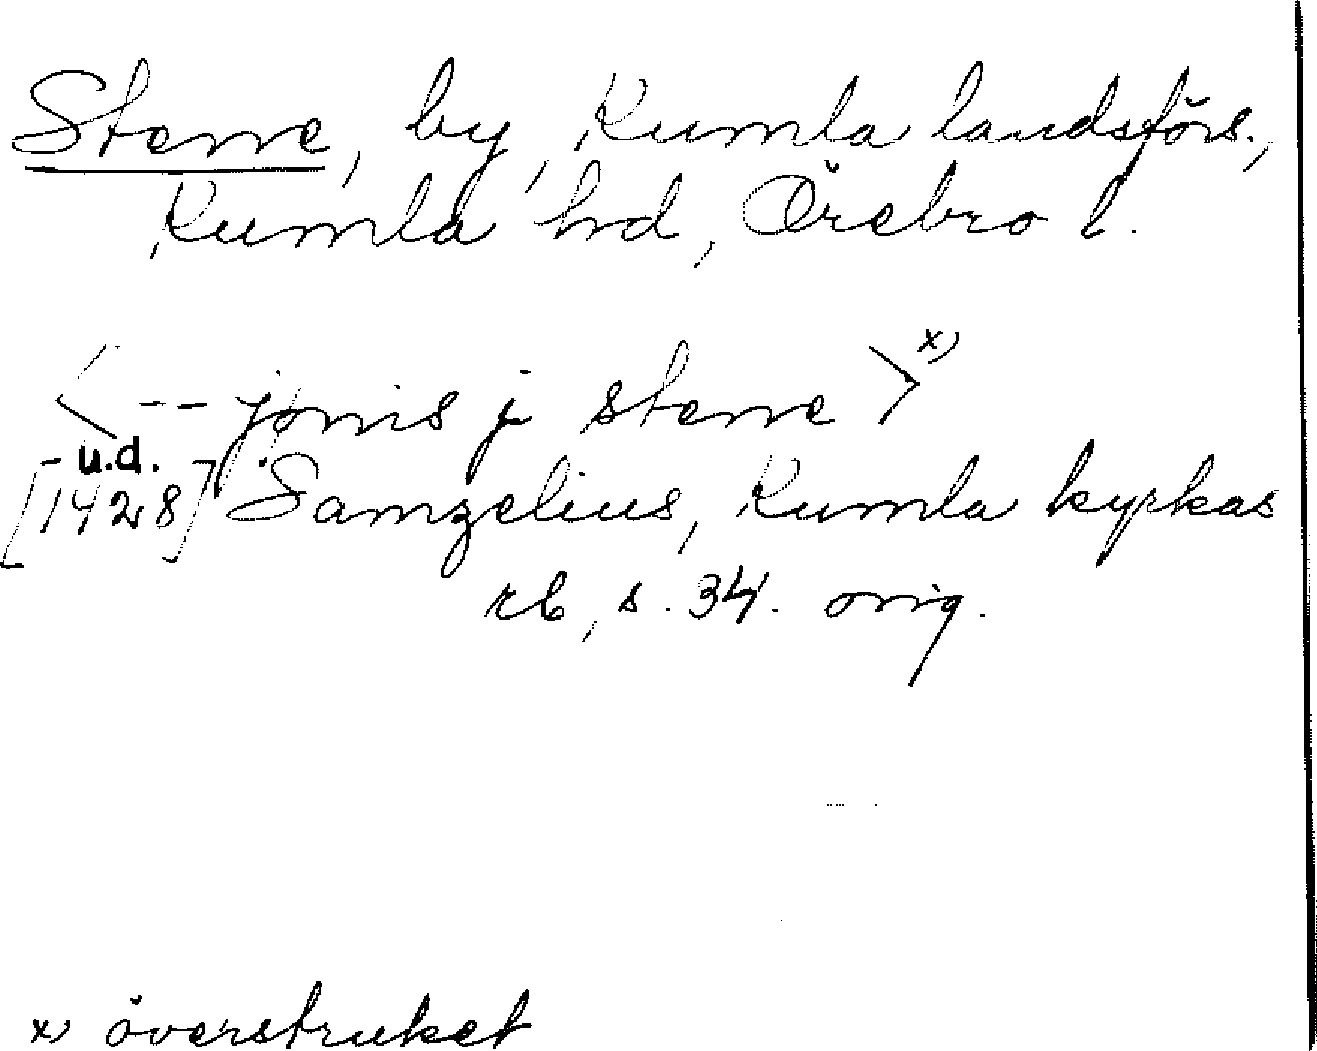 Stene, by, Kumla landsförs.,
Kumla hd, Örebro l.
<-- jönis j stene >x)
u.d.
[1428] Samzelius, Kumla kyrkas
rb, s. 34. orig.
x) överstruket